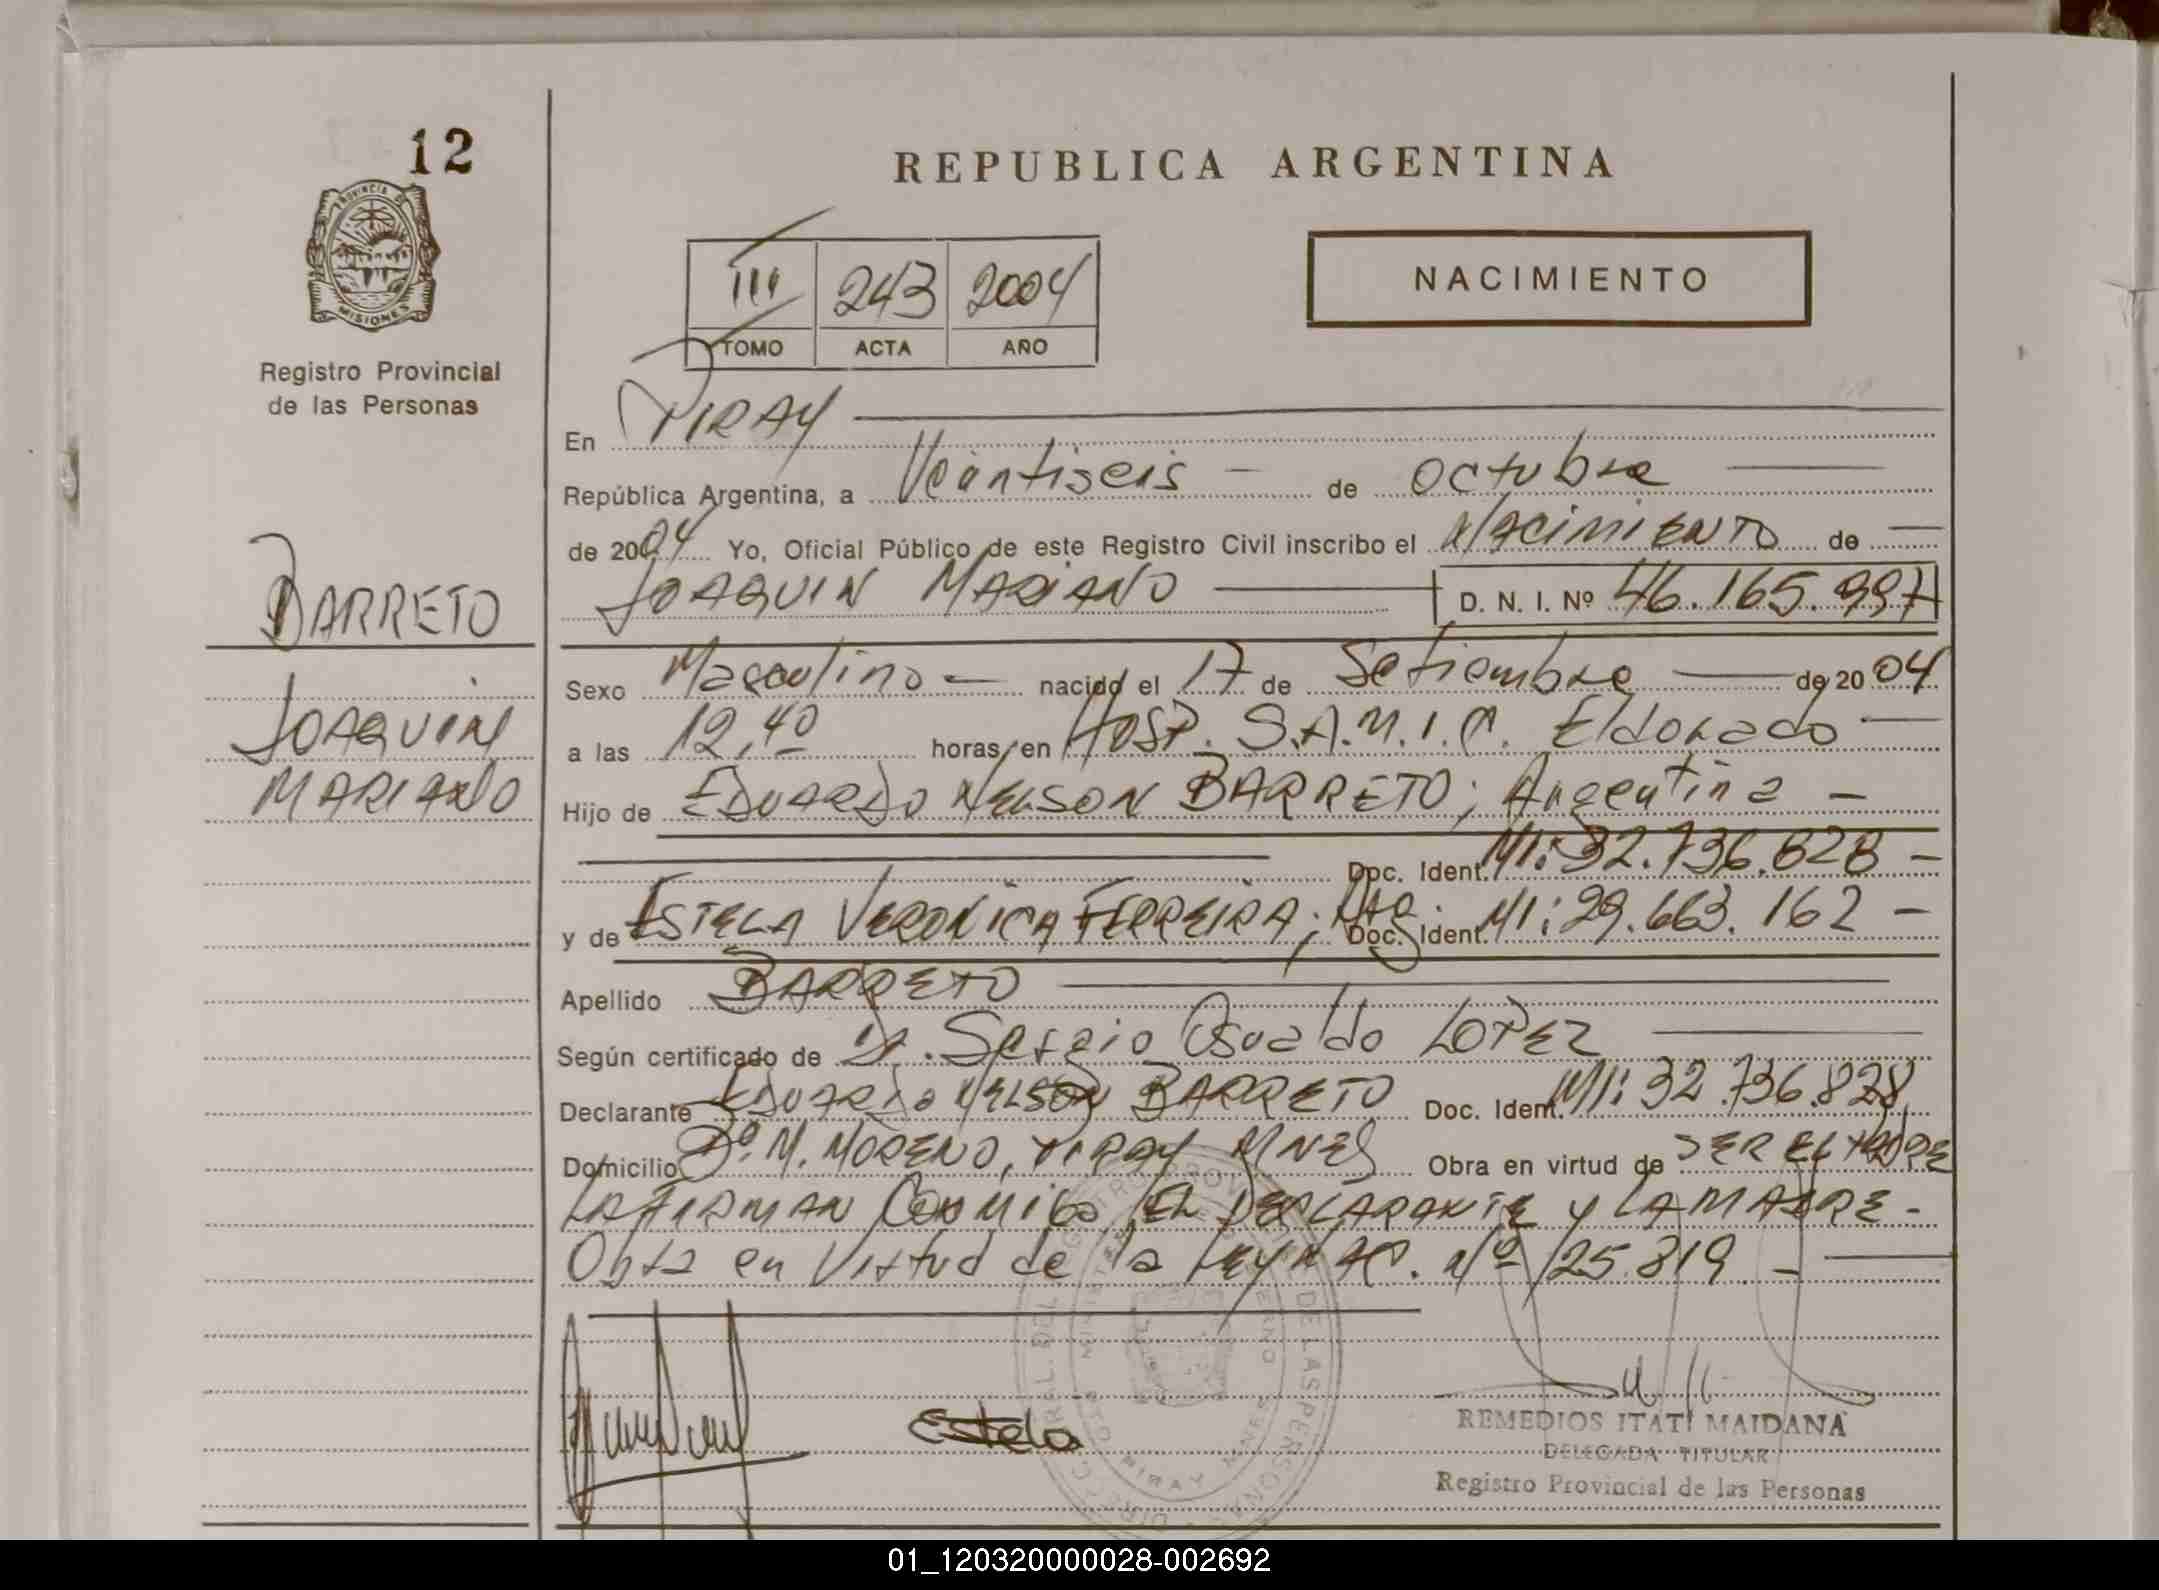 12
PROVINCIA DE
MISIONES
Registro Provincial
de las Personas
BARRETO
JOAQUIN
MARIANO
REPUBLICA ARGENTINA
III 243 2004
TOMO ACTA AÑO
NACIMIENTO
En PIRAY
República Argentina, a Veintiseis - de octubre
de 2004 Yo, Oficial Público de este Registro Civil inscribo el NACIMIENTO de
JOAQUIN MARIANO D. N. I. Nº 46.165.997
Sexo Masculino - nacido el 17 de Setiembre de 2004
a las 12,40 horas, en HOSP. S.A.M.I.C. Eldorado
Hijo de EDUARDO NELSON BARRETO; Argentina -
Doc. Ident. MI: 32.736.828 -
y de ESTELA VERONICA FERREIRA; Arg. Doc. Ident. MI: 29.663.162 -
Apellido BARRETO
Según certificado de Dr. Sergio Osvaldo LOPEZ
Declarante EDUARDO NELSON BARRETO Doc. Ident. MI: 32.736.828
Domicilio Bº. M. MORENO, PIRAY MNES Obra en virtud de SER EL PADRE
LA FIRMAN CONMIGO EL DECLARANTE Y LA MADRE -
Obra en Virtud de la Ley Nac. Nº 25.819 -
Estela
REMEDIOS ITATI MAIDANA
DELEGADA TITULAR
Registro Provincial de las Personas
01_120320000028-002692